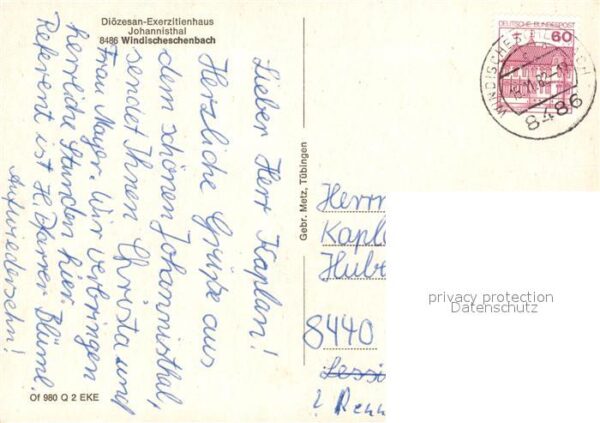 Diözesan-Exerzitienhaus
Johannisthal
8486 Windischeschenbach
Lieber Herr Kaplan!
Herzliche Grüße aus
dem schönen Johannisthal,
sendet Ihnen Christa und
Frau Mayer. Wir verbringen
herrliche Stunden hier
Referent ist H. Pfarrer Blüml.
Aufwiedersehn!
Of 980 Q 2 EKE
Gebr. Metz, Tübingen
DEUTSCHE BUNDESPOST
60
8486
Herrn
Kapla
Hub
8440
privacy protection
Datenschutz